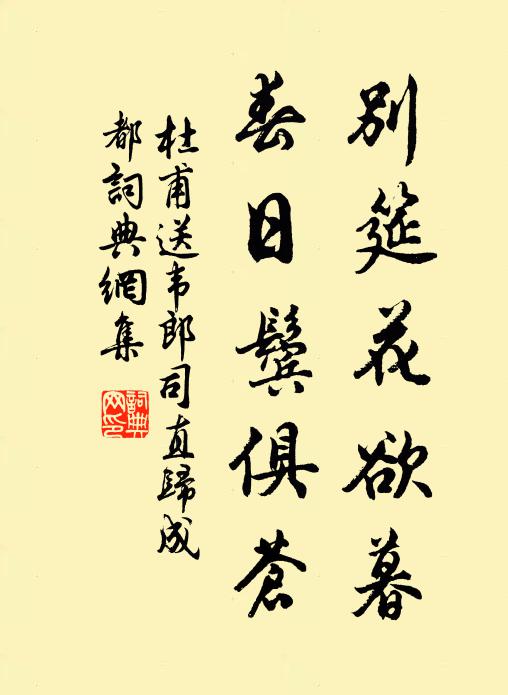 别筵花欲暮
春日鬓俱苍
杜甫送韦郎司直歸成
都詞典網集
詞典
网印